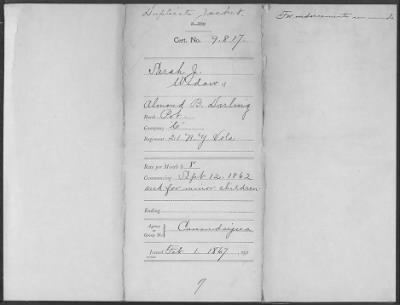 Duplicate Jacket.
Cert. No. 9.817.
Sarah J.
Widow
Almond B. Darling
Rank Pvt
Company "C"
Regiment 21 "N.Y. Vols
Rate per Month $ 8
Commencing Sept 12, 1862
and for minor children
Ending
Agency or Group No. Canandaigua
Issued Feb 1 1867
For endorsements